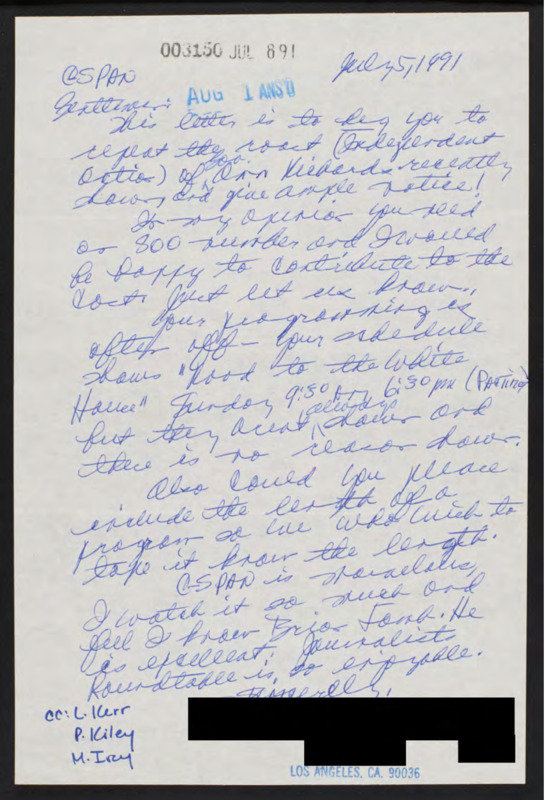 003150 JUL 8 91
July 5, 1991
CSPAN
AUG 1 ANS'D
Gentlemen:
This letter is to beg you to
repeat the roast (Independent
Action) of Ann Richards recently
shown and give ample notice!
In my opinion you need
an 800 number and I would
be happy to contribute to the
cost. Just let us know.
Your programming is
often off - your schedule
shows "Road to the White
House" Sunday 9:30 am, 6:30 pm (Pac time)
but they arent always shown and
there is no reason shown.
Also could you please
include the length of a
program so we who wish to
tape it know the length.
CSPAN is marvelous,
I watch it so much and
feel I know Brian Lamb. He
is excellent. Journalists
Roundtable is so enjoyable.
Sincerely,
cc: L. Kerr
P. Kiley
M.
LOS ANGELES, CA. 90036